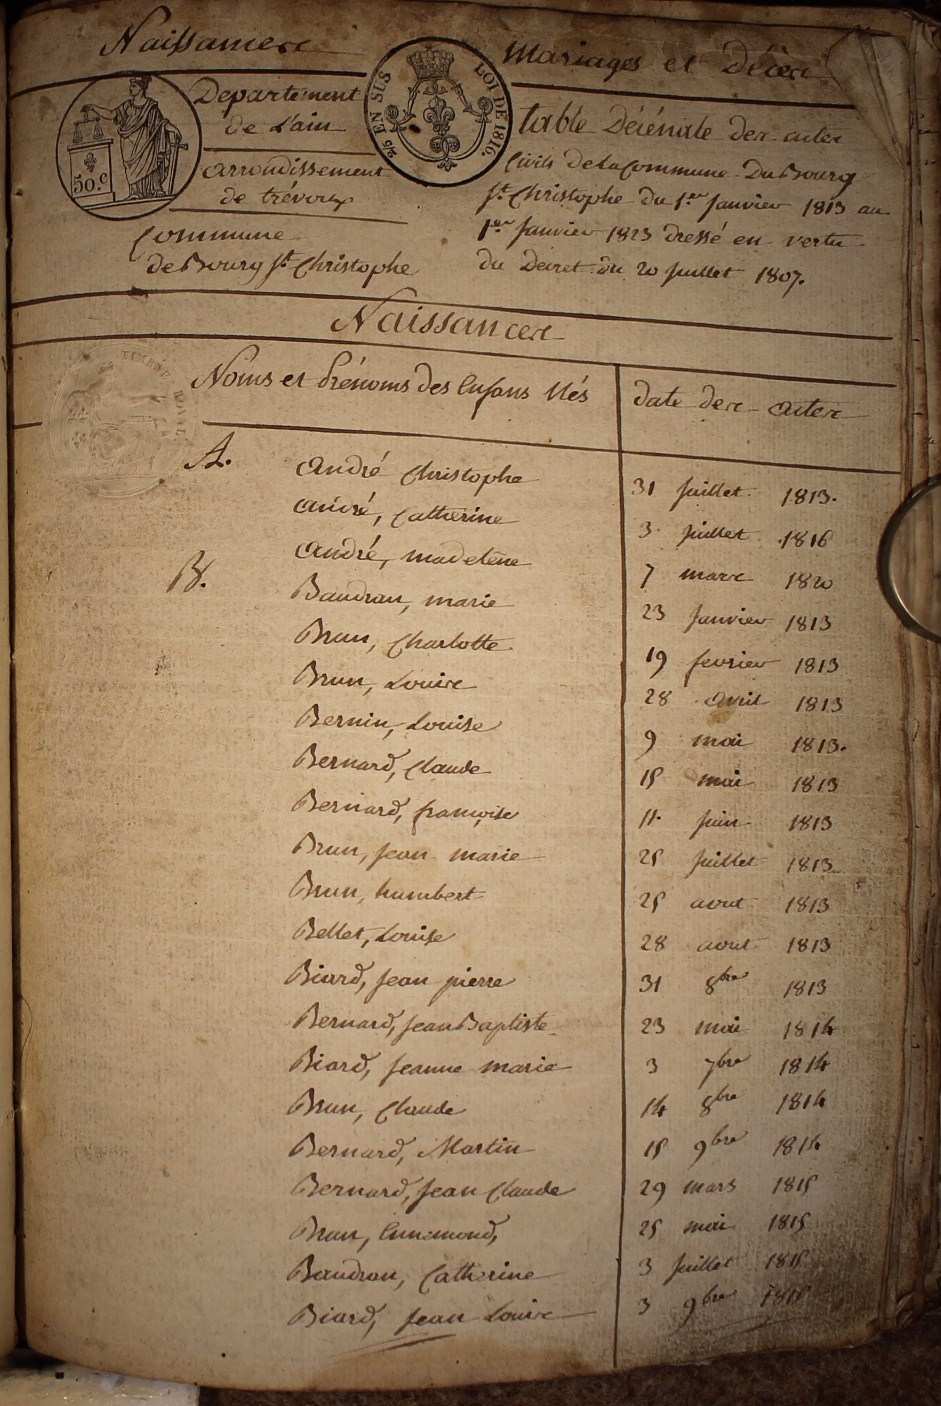 Naissances
Mariages et Décès
Departement
de L'ain
arrondissement
de trévoux
Commune
de Bourg St. Christophe
50.c
EN SUS
LOI DE 1816.
table Décénale des actes
Civils de la Commune Du Bourg
St. Christophe du 1.er Janvier 1813 au
1.er Janvier 1823 dressé en vertu
du Décret du 20 Juillet 1807.
Naissances
Noms et Prénoms des Enfans Nés
date des actes
A. André Christophe 31 Juillet 1813.
André, Catherine 3 Juillet 1816
André, madelene 7 mars 1820
B. Baudran, marie 23 Janvier 1813
Brun, Charlotte 19 fevrier 1813
Brun, Louise 28 avril 1813
Bernin, Louise 9 mai 1813.
Bernard, Claude 15 mai 1813
Bernard, françoise 11 Juin 1813
Brun, Jean marie 25 Juillet 1813
Brun, humbert 25 aout 1813
Bellet, Louise 28 aout 1813
Biard, Jean pierre 31 8bre 1813
Bernard, Jean Baptiste 23 mai 1814
Biard, Jeanne marie 3 7bre 1814
Brun, Claude 14 8bre 1814
Bernard, Martin 15 9bre 1814
Bernard, Jean Claude 29 mars 1815
Brun, Ennemond, 25 mai 1815
Baudran, Catherine 3 Juillet 1815
Biard, Jean Louis 3 9bre 1815